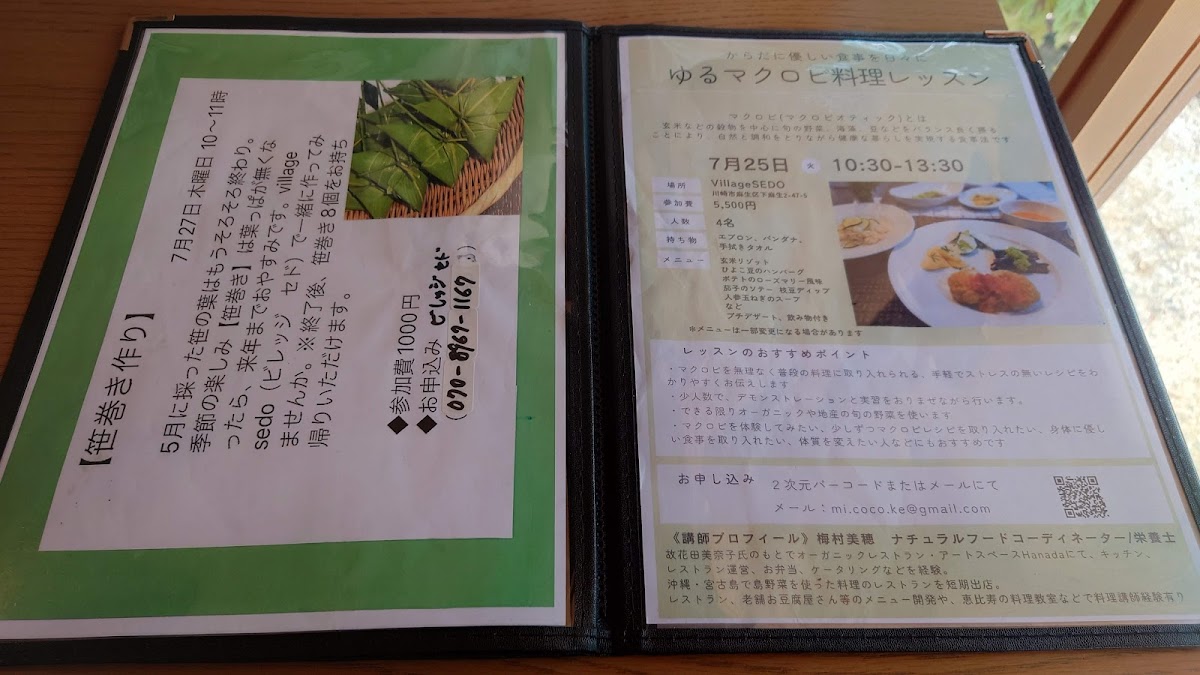 【笹巻き作り】
7月27日 木曜日 10〜11時
5月に採った笹の葉はもうそろそろ終わり。
季節の楽しみ【笹巻き】は葉っぱが無くな
ったら、来年までおやすみです。village
sedo（ビレッジ セド）で一緒に作ってみ
ませんか。※終了後、笹巻き８個をお持ち
帰りいただけます。
◆参加費1000円
◆お申込み ビレッジ セド
(070-8969-1167)
からだに優しい食事を日々に
ゆるマクロビ料理レッスン
マクロビ(マクロビオティック)とは
玄米などの穀物を中心に旬の野菜、海藻、豆などをバランス良く摂る
ことにより、自然と調和をとりながら健康な暮らしを実現する食事法です
7月25日 火 10:30-13:30
場所 VillageSEDO
川崎市麻生区下麻生2-47-5
参加費 5,500円
人数 4名
持ち物 エプロン、バンダナ、
手拭きタオル
メニュー 玄米リゾット
ひよこ豆のハンバーグ
ポテトのローズマリー風味
茄子のソテー 枝豆ディップ
人参玉ねぎのスープ
など
プチデザート、飲み物付き
※メニューは一部変更になる場合があります
レッスンのおすすめポイント
・マクロビを無理なく普段の料理に取り入れられる、手軽でストレスの無いレシピをわ
かりやすくお伝えします
・少人数で、デモンストレーションと実習をおりまぜながら行います。
・できる限りオーガニックや地産の旬の野菜を使います
・マクロビを体験してみたい、少しずつマクロビレシピを取り入れたい、身体に優し
い食事を取り入れたい、体質を変えたい人などにもおすすめです
お申し込み ２次元バーコードまたはメールにて
メール：mi.coco.ke@gmail.com
《講師プロフィール》梅村美穂 ナチュラルフードコーディネーター/栄養士
故花田美奈子氏のもとでオーガニックレストラン・アートスペースHanadaにて、キッチン、
レストラン運営、お弁当、ケータリングなどを経験。
沖縄・宮古島で島野菜を使った料理のレストランを短期出店。
レストラン、老舗お豆腐屋さん等のメニュー開発や、恵比寿の料理教室などで料理講師経験有り